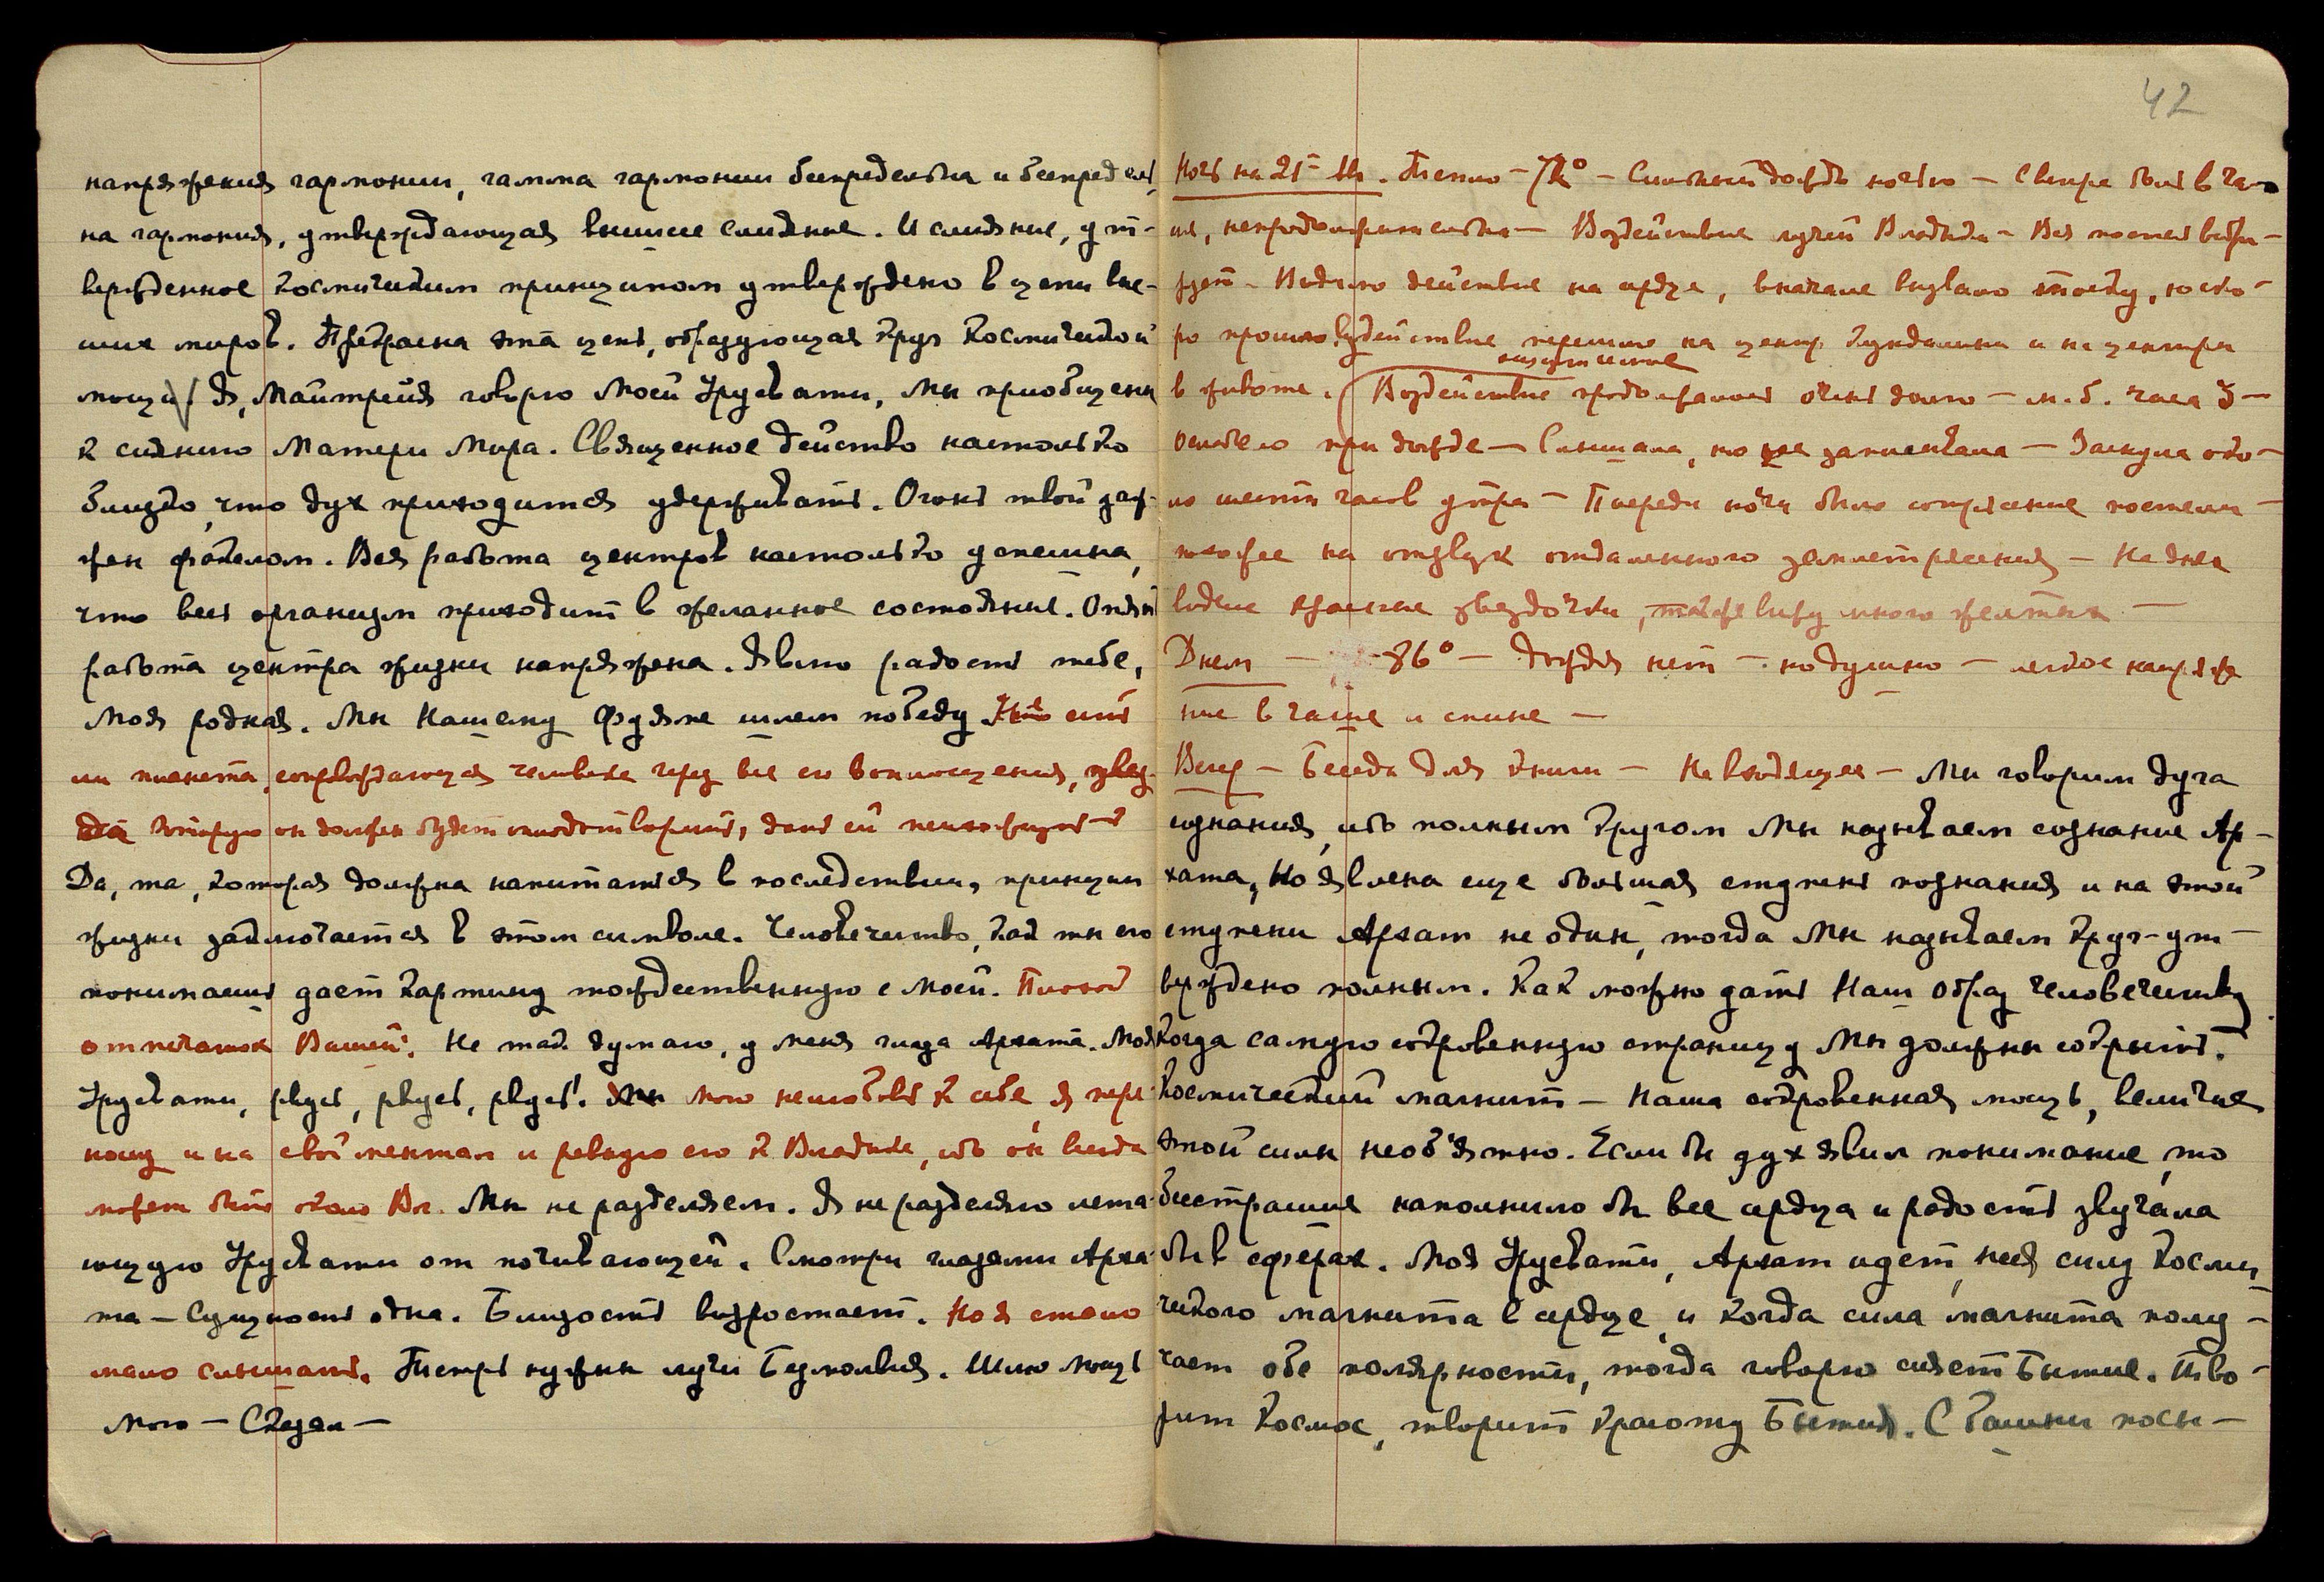 напряжения гармонии, гамма гармонии беспредельна и беспредель
на гармония, утверждающая высшее слияние. И слияние, ут-
вержденное космическим принципом утверждено в цепи выс-
ших миров. Прекрасна эта цепь, образующая круг Космической
мощи/ Я, Майтрейя говорю Моей Урусвати, Мы приобщены
к сиянию Матери Мира. Священное действо настолько
близко, что дух приходится удерживать. Огонь твой заж-
жен факелом. Вся работа центров настолько успешна,
что весь организм приходит в желанное состояние. Опять
работа центра жизни напряжена. Явлю радость тебе,
Моя родная. Мы Нашему Фуяме шлем победу есть
ли планета, сопровождающая человека через все его воплощения, звез-
да которую он должен будет оплодотворить, дать ей
Да, та, которая должна напитаться в последствии, принцип
жизни заключается в этом символе. Человечество, как ты его
понимаешь дает картину тождественную с моей. Плохой
отпечаток Вашей. Не так думаю, у меня глаза Архата. Моя
Урусвати, рвусь, рвусь, рвусь! мою нелюбовь к себе я пере-
ношу и на свой ментал и ревную его к Владыке, ибо он всегда
может быть около Вл. Мы не разделяем. Я не разделяю лета-
ющую Урусвати от почивающей. Смотри глазами Арха-
та – Сущность одна. Близость возростает. Но я стала
мало слышать. Теперь нужны лучи Безмолвия. Шлю мощь
мою – Сказал –
42
Ночь на 21-ое. Тепло – 72° – Сильный дождь ночью – Сверх боль в чаш
ше, непродолжительна – Воздействие лучей Владыки – Вся постель вибри-
рует – Видимо действие на сердце, вначале вызвало тоску, но ско-
ро прошло воздействие перешло на центр Кундалини и на центры
в животе. (Воздействие продолжалось очень долго – м.б. часа 3 –
ослабело при дожде – Слышала, но не записывала – Заснула око-
ло шести часов утра – Посреди ночи было сотрясение постели –
похожее на отзвук отдаленного землетрясения – На днях
видела красные звездочки, также вижу много желтых –
Днем – 86° – Дождя нет – но душно – легкое напряже
ние в чаше и спине –
Вечер – Беседа для книги – Не входящее – Мы говорим дуга
сознания, ибо полным кругом Мы называем сознание Ар-
хата, Но явлена еще большая ступень познания и на этой
ступени Архат не один, тогда Мы называем круг – ут-
вержденно полным. Как можно дать Наш Образ человечеству
когда самую сокровенную страницу Мы должны сокрыть.
Космический магнит – Наша сокровенная мощь, величие
этой силы необ'ятно. Если бы дух явил понимание то
бесстрашие наполнило бы все сердца и радость звучала
бы в сферах. Моя Урусвати, Архат идет, неся силу Косми
ческого магнита в сердце, и когда сила магнита полу-
чает обе полярности, тогда говорю сияет Бытие. Тво-
рит Космос, творит красоту Бытия. С Башни посы-